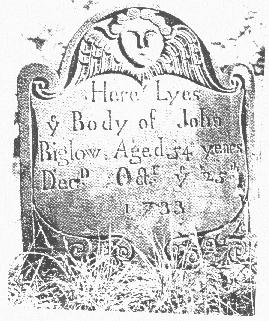 Here Lyes
yͤ Body of John
Biglow Aged 54 years
Decᴰ Octʳ yͤ 25ᵗʰ
1733